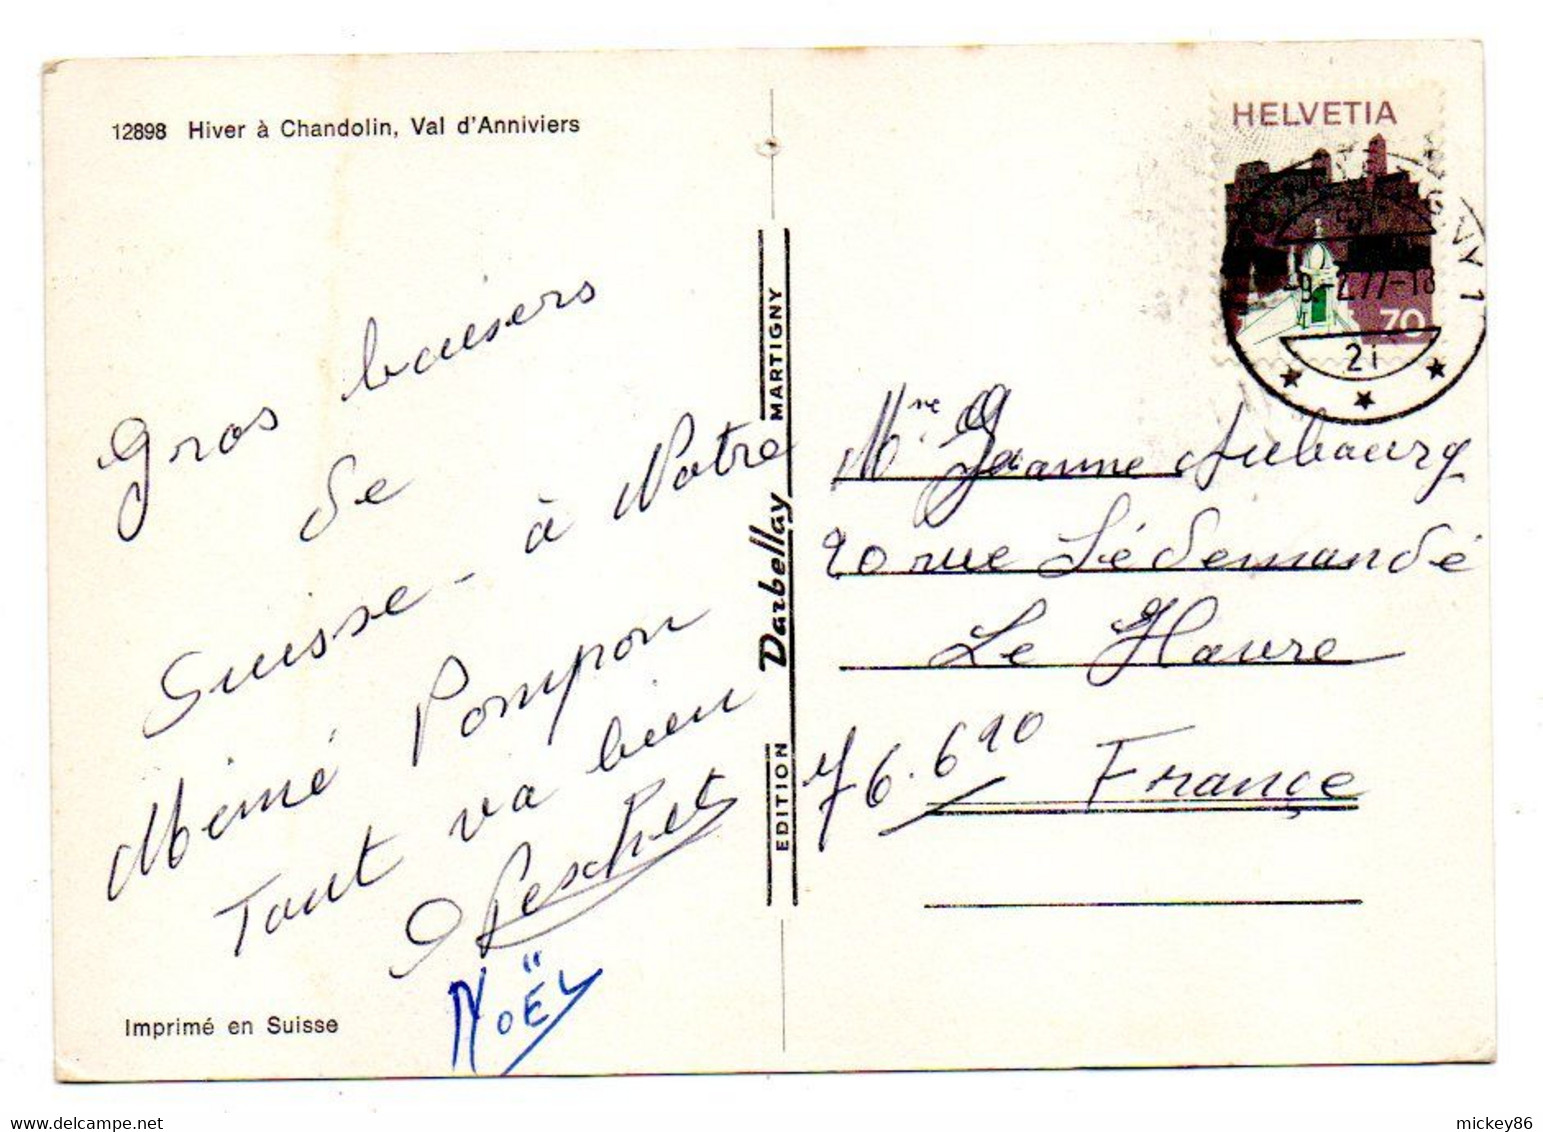 12898 Hiver à Chandolin, Val d'Anniviers
Gros baisers
de
Suisse - à Notre
Mémé Pompon
Tout va bien
Peschet
NOËL
Imprimé en Suisse
EDITION Darbellay MARTIGNY
HELVETIA
70
9.-2.77-18
21
Mme Jeanne Aubourg
20 rue Lédemandé
Le Havre
76.620
France
mickey86